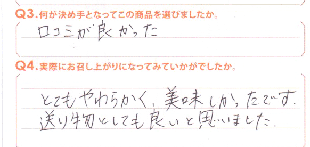 Q3.何が決め手となってこの商品を選びましたか。
口コミが良かった
Q4.実際にお召し上がりになってみていかがでしたか。
とてもやわらかく、美味しかったです。
送り物としても良いと思いました。